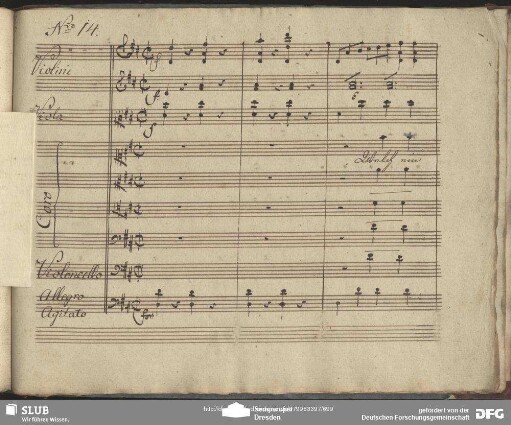 Nro 14.
Violini
Viola
Coro
Violoncello
Allegro
Agitato
SLUB
Wir führen Wissen.
Dresden
gefördert von der
Deutschen Forschungsgemeinschaft
DFG